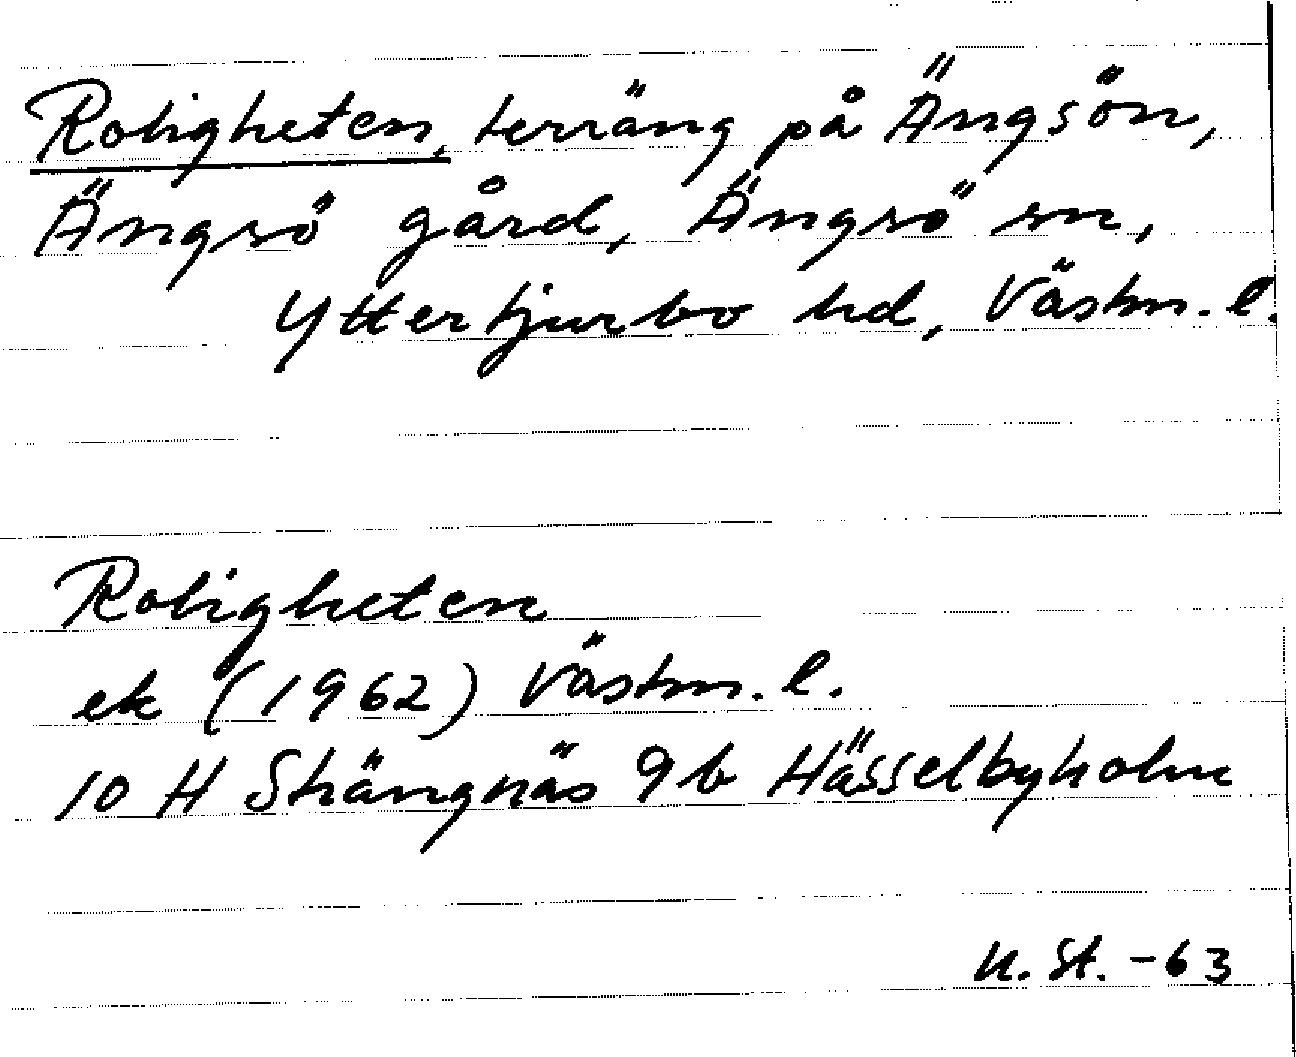 Roligheten, terräng på Ängsön,
Ängsö gård, Ängsö sn,
Yttertjurbo hd, Västm. l.
Roligheten
ek (1962) Västm. l.
10 H Strängnäs 9 b Hässelbyholm
N. St. -63